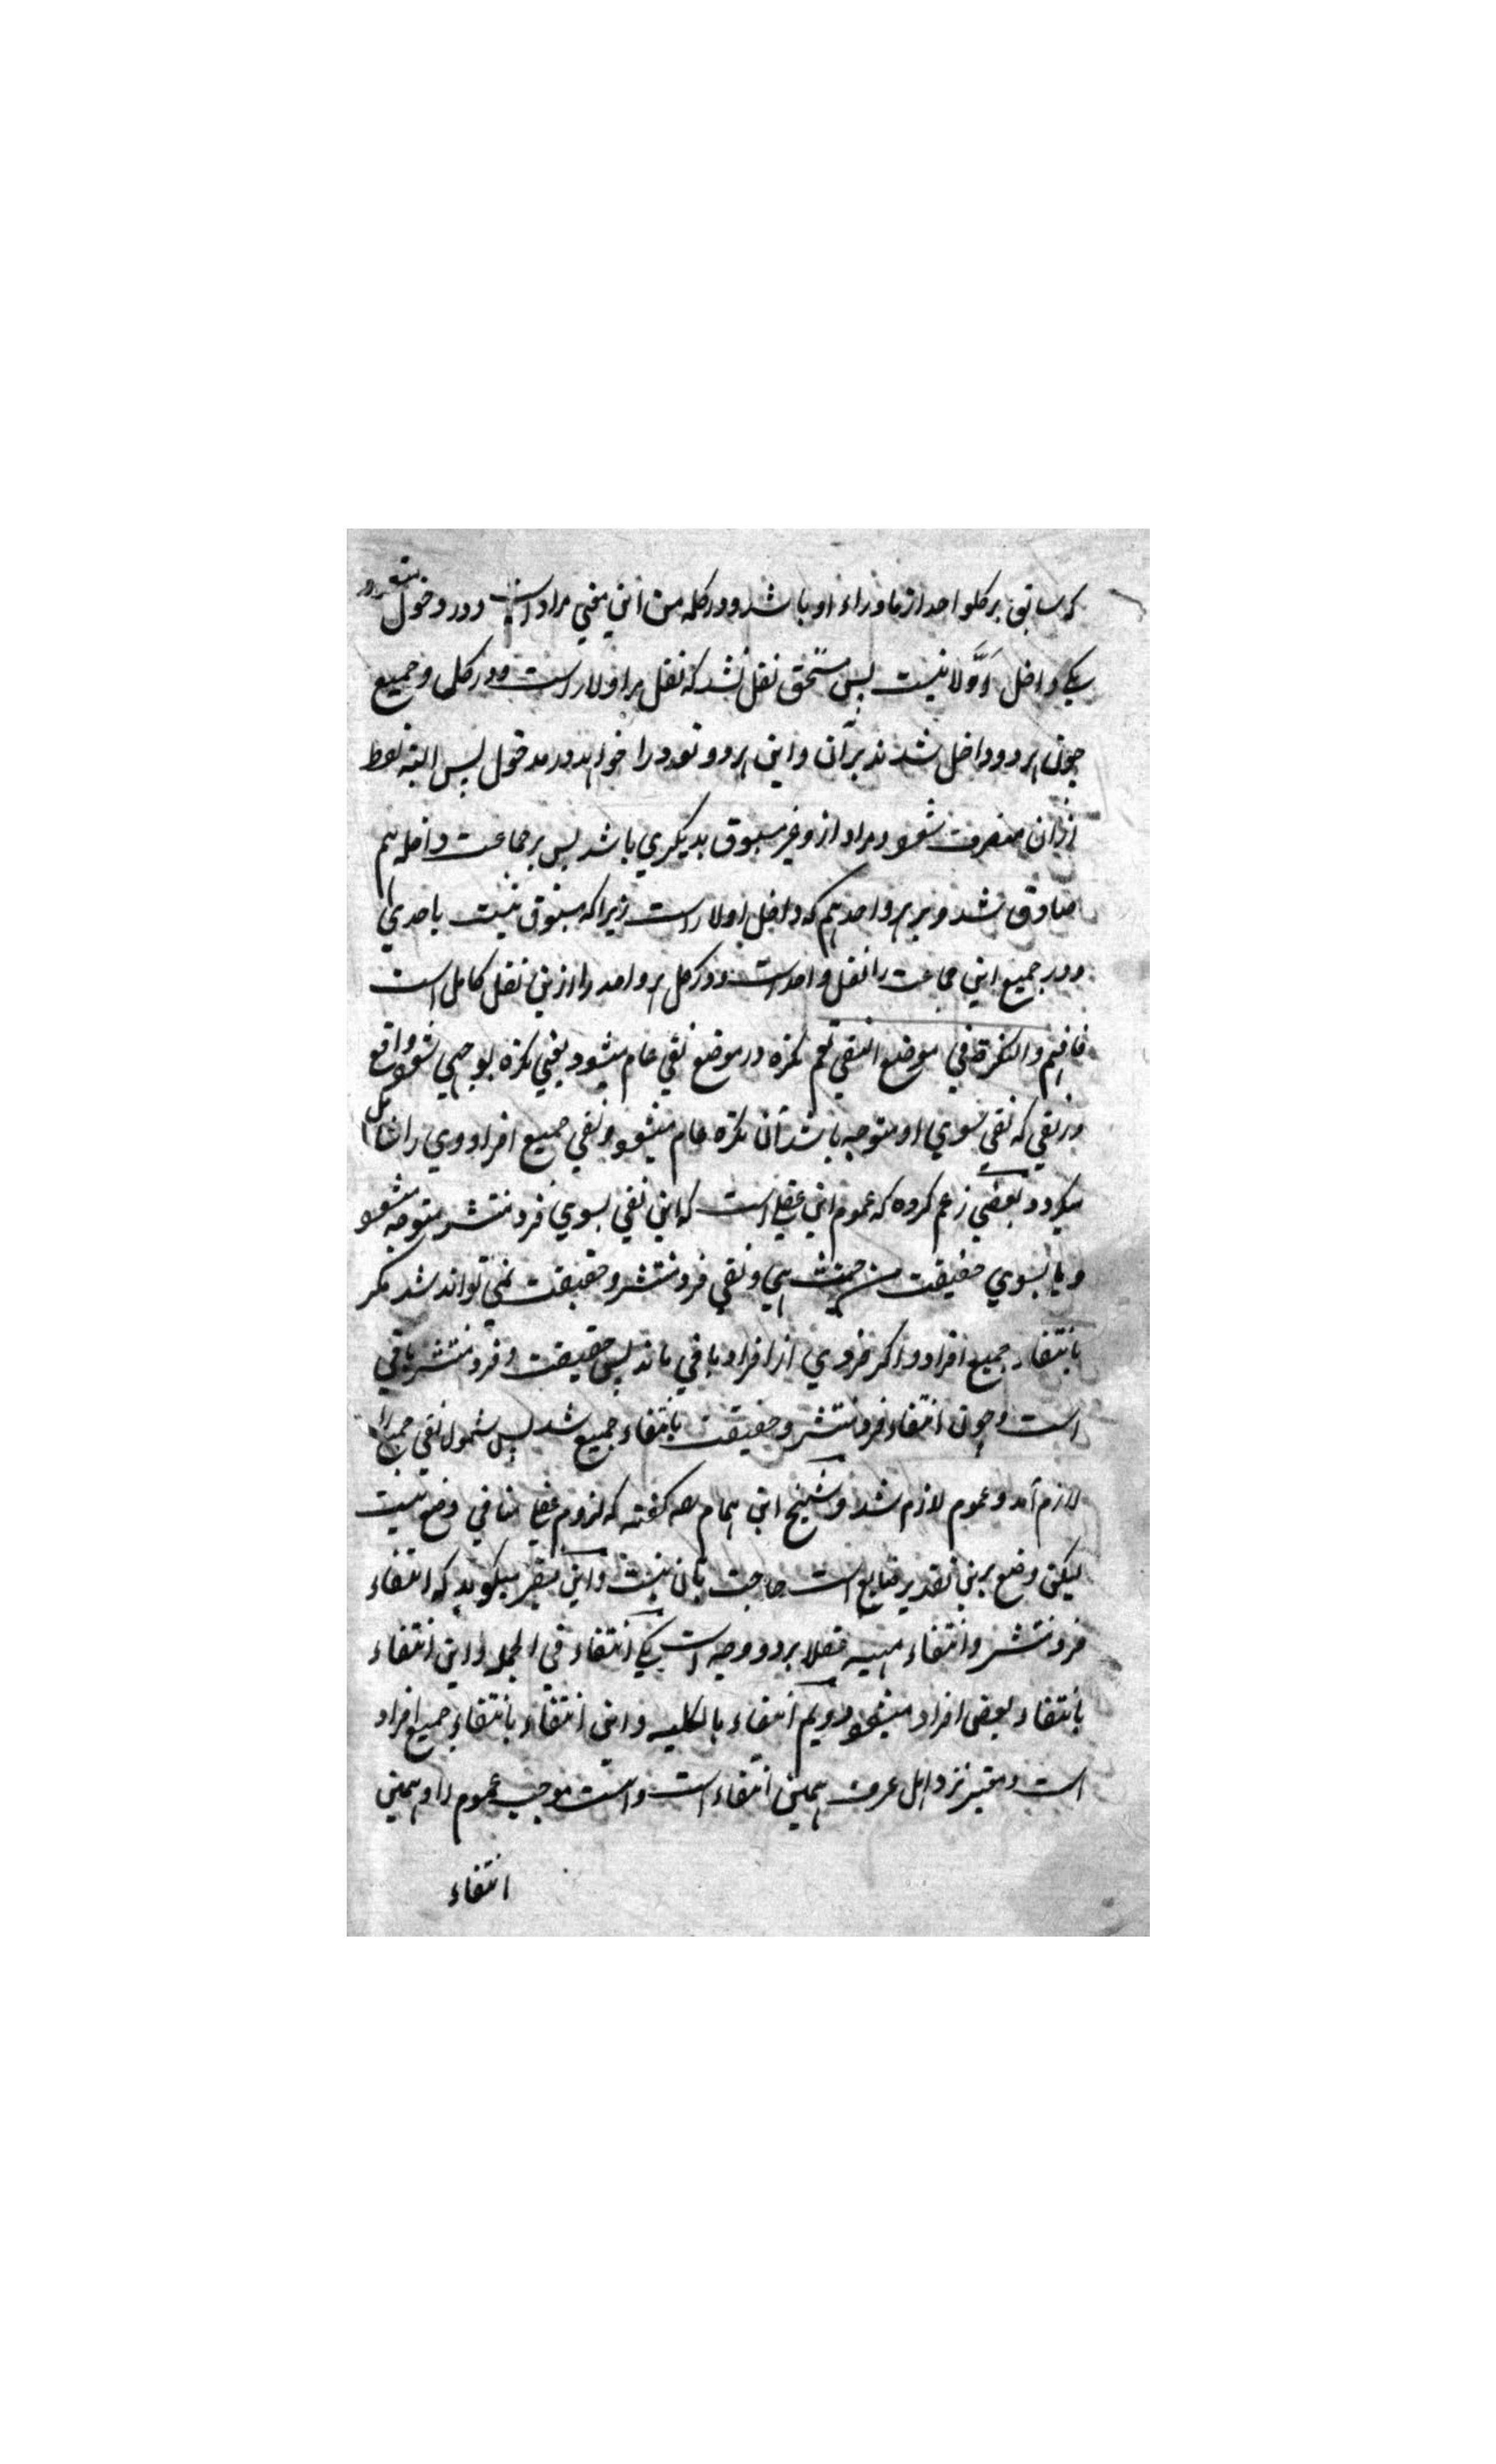 که سابق بر کلواحد از ماوراء او باشد و در کلمه من این معنی مراد است و در دخول
یکی داخل اوّلا نیست پس مستحق نفل نشد که نفل مر اولا راست و در کل و جمیع
چون هر دو داخل شدند بر آن و این هر دو تعدد را خواهد در مدخول پس البته لفظ
از آن منصرف شود و مراد از و غیر مسبوق بدیگری باشد پس بر جماعت داخله هم
صادق شد و بر هر واحد هم که داخل اولا راست زیرا که مسبوق نیست باحدی
و در جمیع این جماعت را نفل واحد است و در کل هر واحد را ازین نفل کامل است
فافهم والنکرة في موضع النفي تعم نکره در موضع نفی عام میشود یعنی نکره بوجهی شود واقع
در نفی که نفی بسوی او متوجه باشد آن نکره عام میشود و نفی جمیع افراد وی را شامل
میگردد و بعضی زعم کرده که عموم این عقلی است که این نفی بسوی فرد منتشر متوجه شود
و یا بسوی حقیقت من حیث هی و نفی فرد منتشر و حقیقت نمی تواند شد مگر
بانتفاء جمیع افراد و اگر فردی از افراد باقی ماند پس حقیقت و فرد منتشر باقی
است و چون انتفاء فرد منتشر و حقیقت بانتفاء جمیع شد پس شمول نفی جمیع را
لازم آمد و عموم لازم شد و شیخ ابن همام گفته که لزوم عقلی منافی وضع نیست
لیکن وضع برین تقدیر ضایع است حاجت بآن نیست و این فقیر میگوید که انتفاء
فرد منتشر و انتفاء عقلا بر دو وجه است یکی انتفاء في الجمله و این انتفاء
بانتفاء بعض افراد میشود دویم انتفاء بالکلیه و این انتفاء بانتفاء جمیع افراد
است و معتبر نزد اهل عرف همین انتفاء است و است موجب عموم را و همین
انتفاء